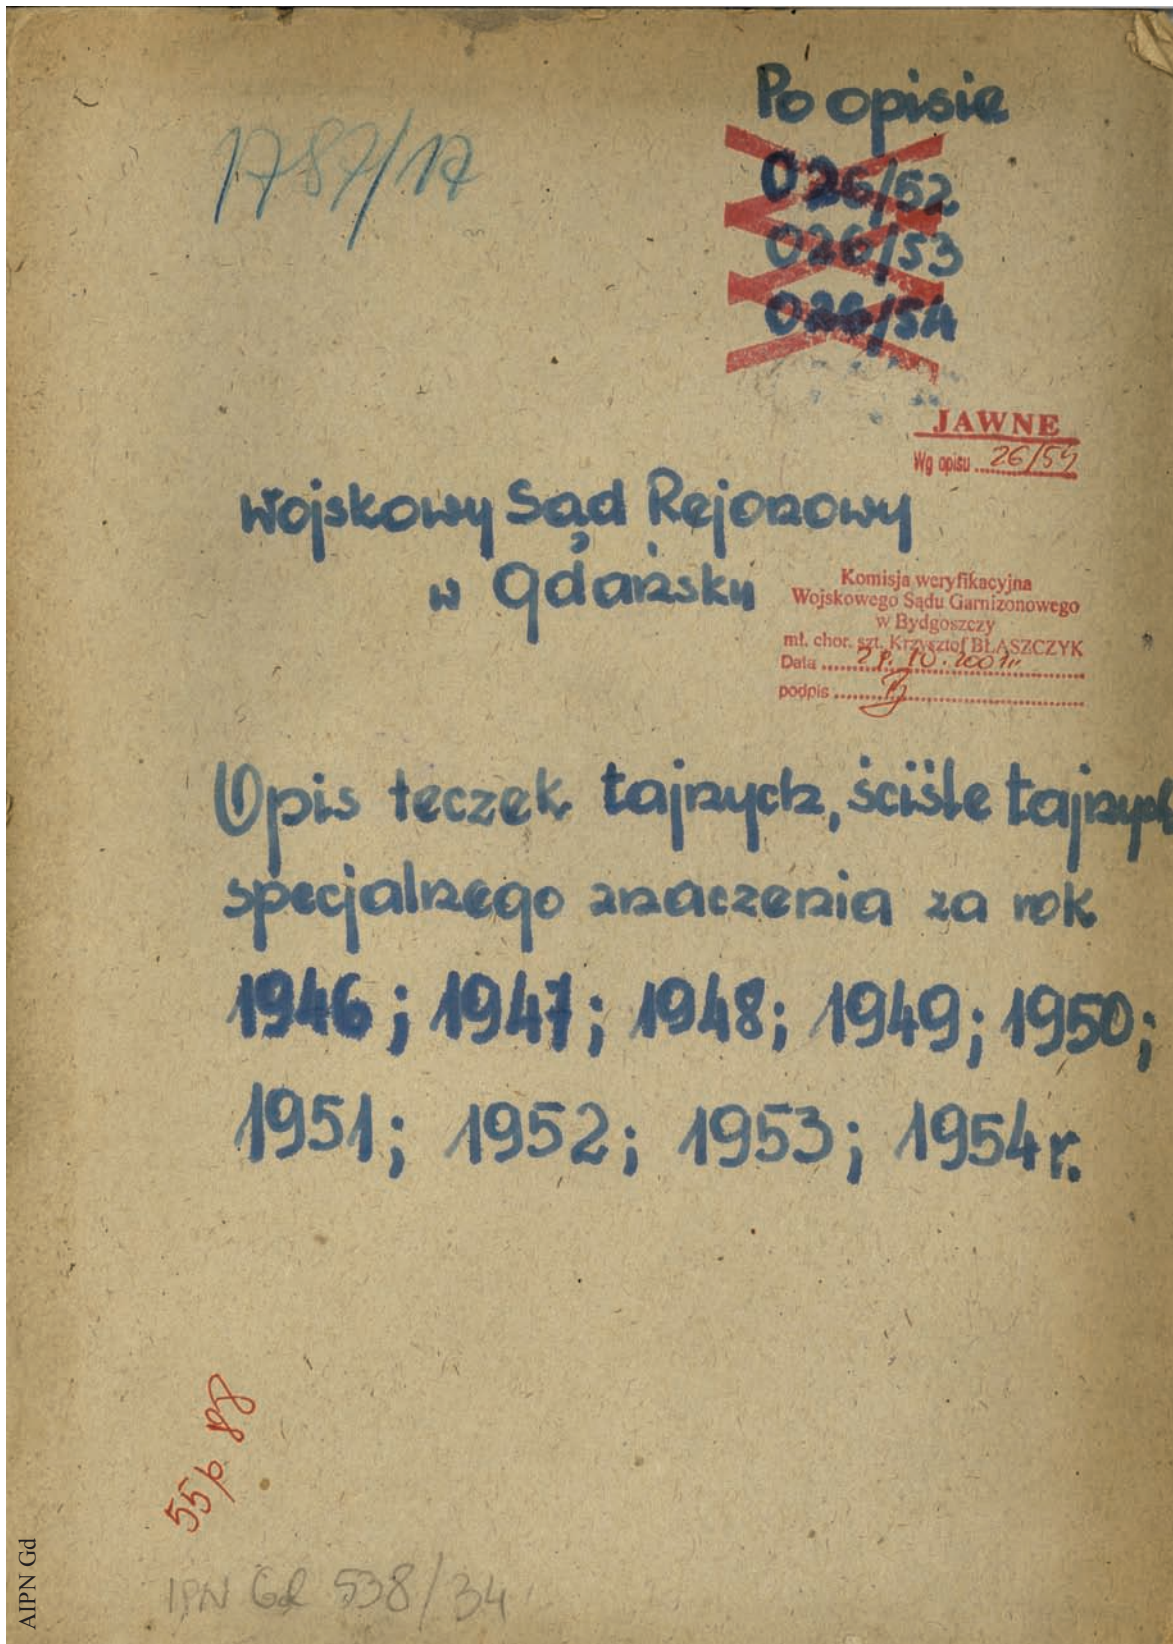 Po opisie
1787/17
026/52
026/53
026/54
JAWNE
Wg opisu 26/54
Wojskowy Sąd Rejonowy
w Gdańsku
Komisja weryfikacyjna
Wojskowego Sądu Garnizonowego
w Bydgoszczy
mł. chor. szt. Krzysztof BŁASZCZYK
Data 10.2001r
podpis
Opis teczek tajnych, ściśle tajnych
specjalnego znaczenia za rok
1946; 1947; 1948; 1949; 1950;
1951; 1952; 1953; 1954r.
IPN Gd 538/34
AIPN Gd